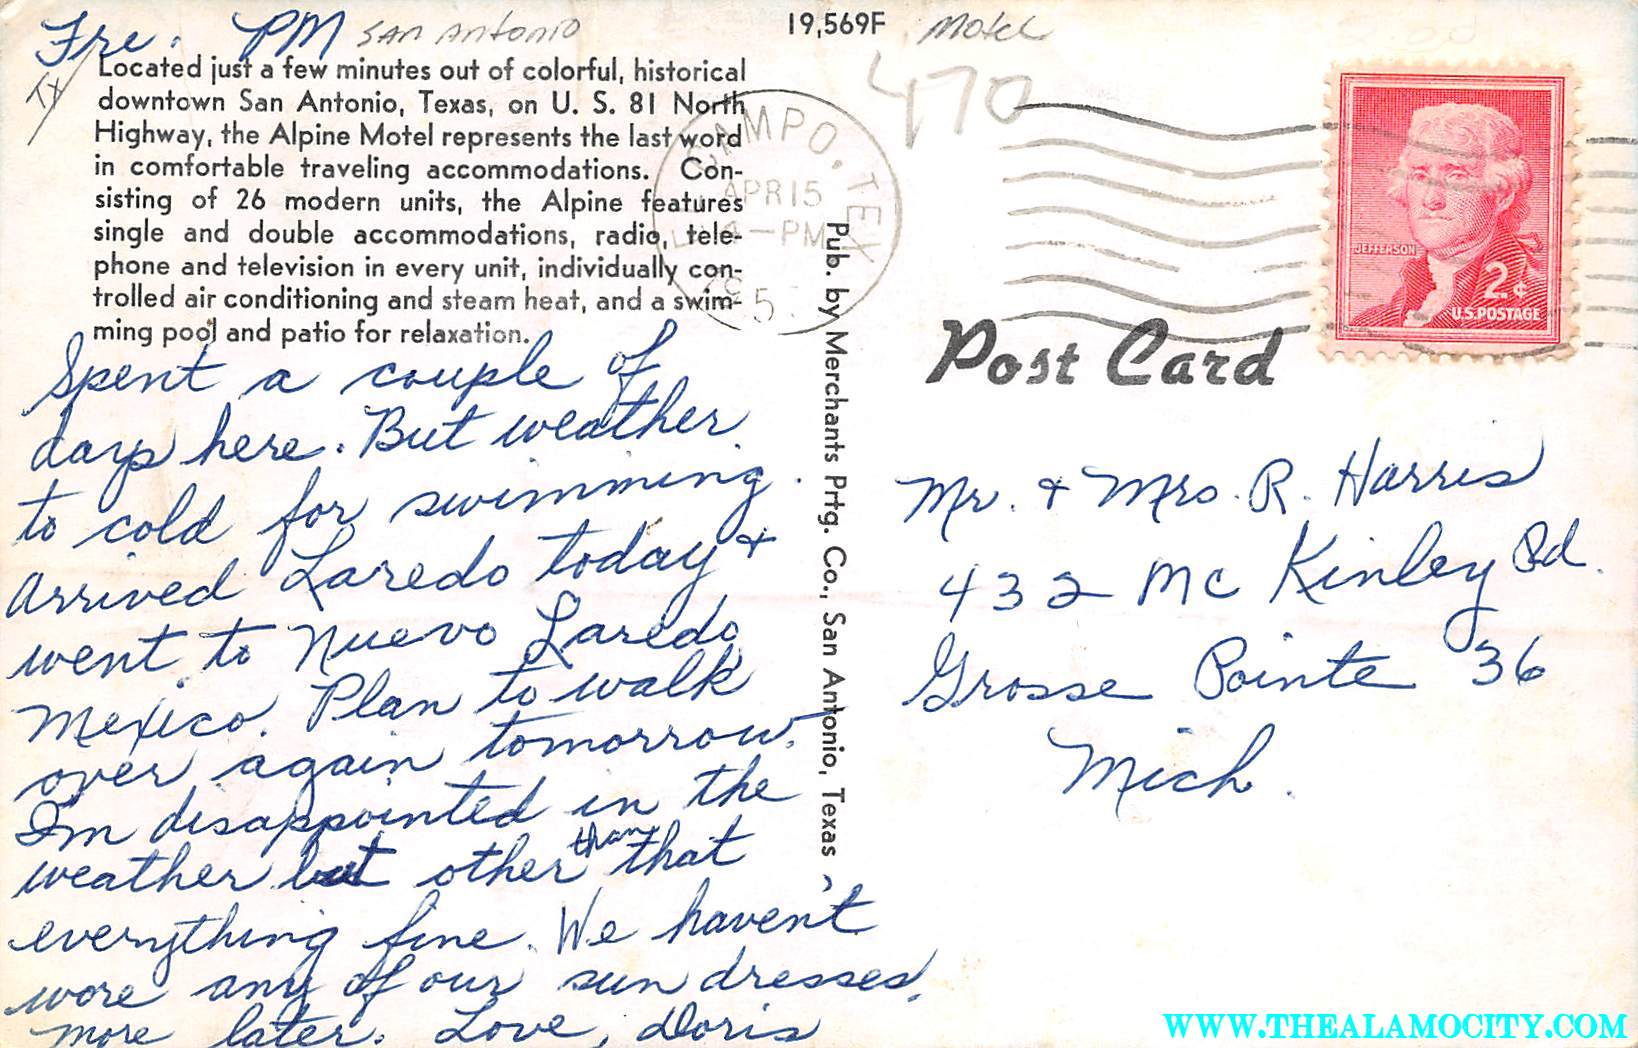 Fri. PM San Antonio
TX
19,569F
Motel
470
Located just a few minutes out of colorful, historical
downtown San Antonio, Texas, on U. S. 81 North
Highway, the Alpine Motel represents the last word
in comfortable traveling accommodations. Con-
sisting of 26 modern units, the Alpine features
single and double accommodations, radio, tele-
phone and television in every unit, individually con-
trolled air conditioning and steam heat, and a swim-
ming pool and patio for relaxation.
CAMPO, TEX
APR 15
4 - PM
Spent a couple of
days here. But weather
to cold for swimming.
Arrived Laredo today +
went to Nuevo Laredo
Mexico. Plan to walk
over again tomorrow.
I'm disappointed in the
weather but other than that
everything fine. We haven't
wore any of our sun dresses.
more later. Love, Doris
Pub. by Merchants Prtg. Co., San Antonio, Texas
JEFFERSON
2¢
U.S. POSTAGE
Post Card
Mr. + Mrs. R. Harris
432 McKinley Rd.
Grosse Pointe 36
Mich.
WWW.THEALAMOCITY.COM